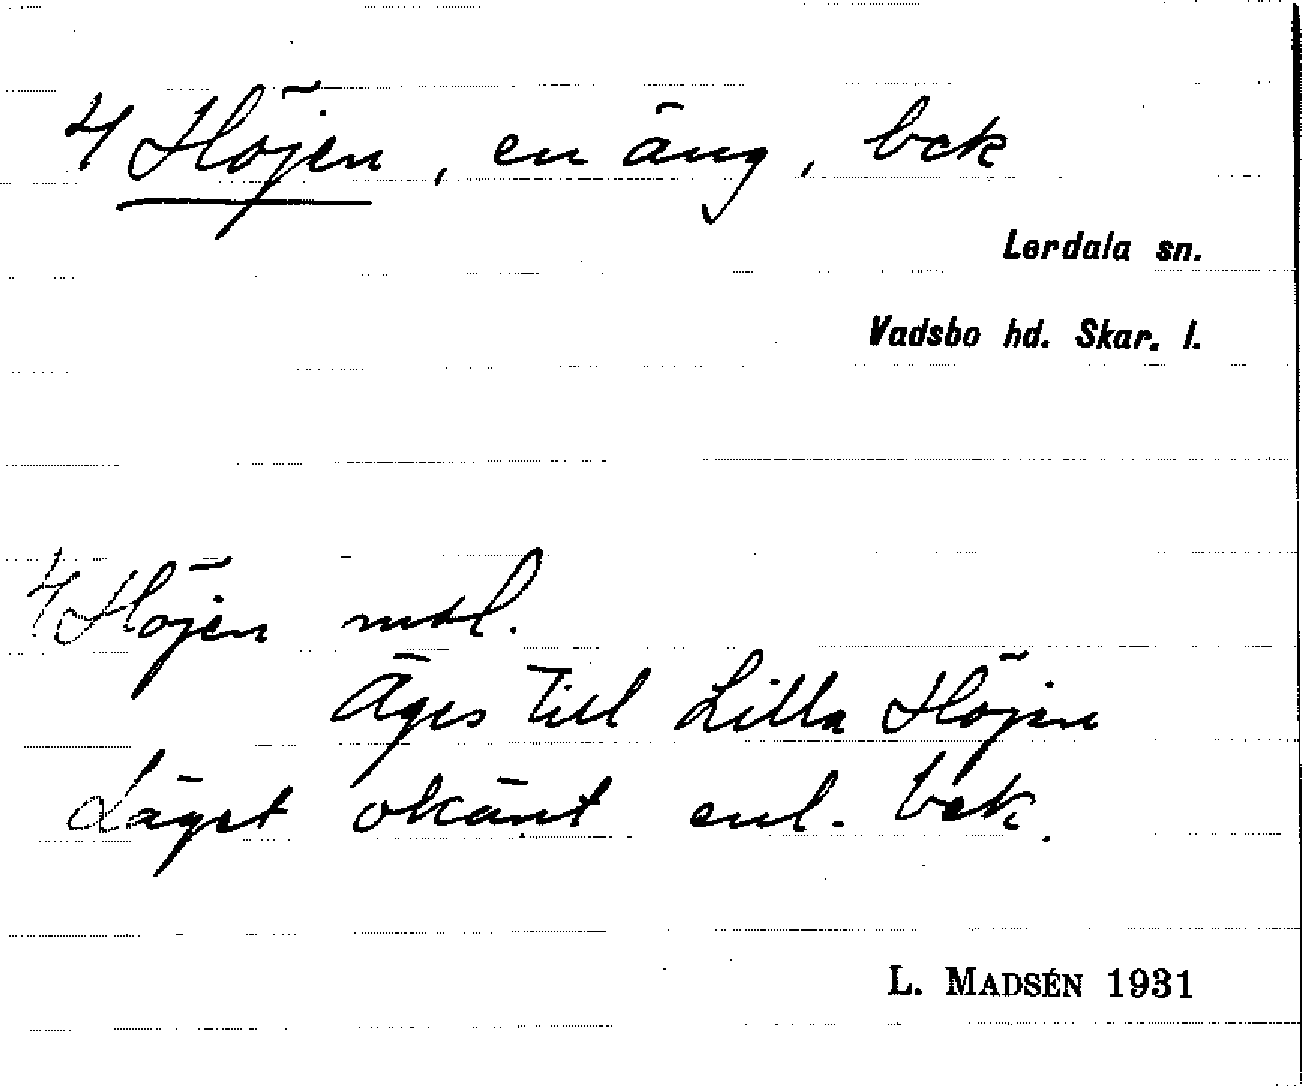 4 Höjen, en äng, bek
Lerdala sn.
Vadsbo hd. Skar. l.
4 Höjen mtl.
Äges till Lilla Höjen
Läget okänt enl. bek.
L. MADSÉN 1931